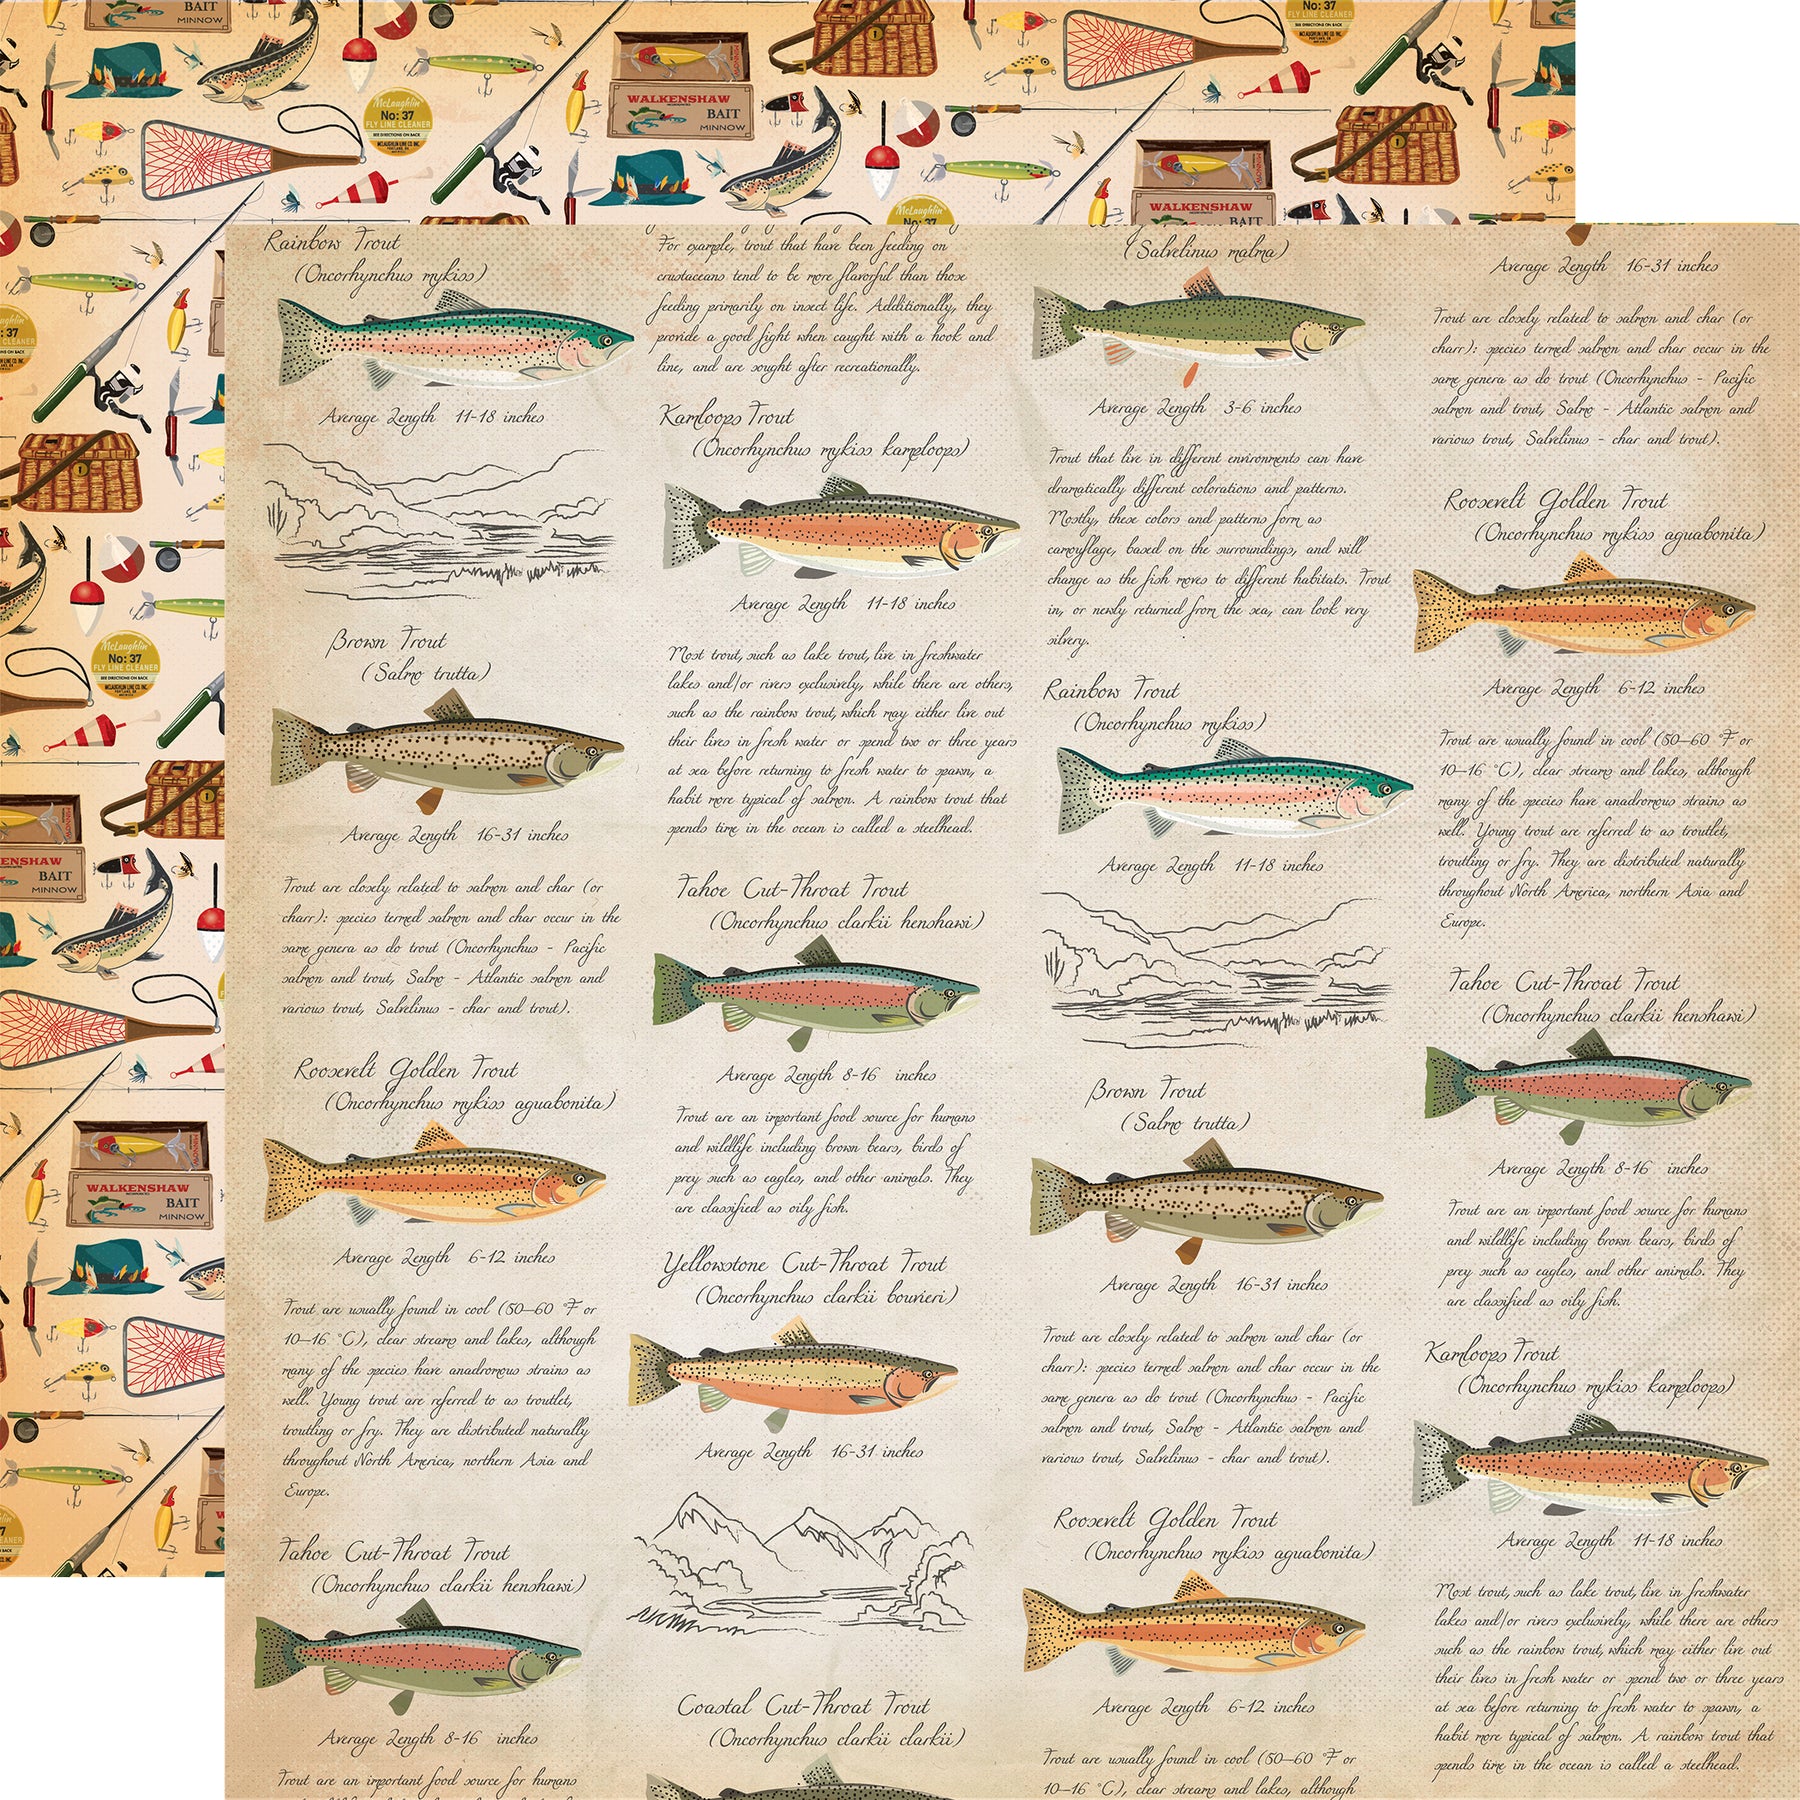 No: 37
FLY LINE CLEANER
MCLAUGHLIN LINE CO. INC.
PORTLAND, OR.
BAIT
MINNOW
MINNOW
WALKENSHAW
BAIT
MINNOW
McLaughlin
No: 37
FLY LINE CLEANER
SEE DIRECTIONS ON BACK
MCLAUGHLIN LINE CO. INC.
PORTLAND, OR.
WALKENSHAW
BAIT
McLaughlin
No: 37
McLaughlin
No: 37
FLY LINE CLEANER
SEE DIRECTIONS ON BACK
MCLAUGHLIN LINE CO. INC.
PORTLAND, OR.
MINNOW
ENSHAW
BAIT
MINNOW
MINNOW
WALKENSHAW
BAIT
MINNOW
Rainbow Trout
(Oncorhynchus mykiss)
Average Length 11-18 inches
Brown Trout
(Salmo trutta)
Average Length 16-31 inches
Trout are closely related to salmon and char (or
charr): species termed salmon and char occur in the
same genera as do trout (Oncorhynchus - Pacific
salmon and trout, Salmo - Atlantic salmon and
various trout, Salvelinus - char and trout).
Roosevelt Golden Trout
(Oncorhynchus mykiss aguabonita)
Average Length 6-12 inches
Trout are usually found in cool (50–60 °F or
10–16 °C), clear streams and lakes, although
many of the species have anadromous strains as
well. Young trout are referred to as troutlet,
troutling or fry. They are distributed naturally
throughout North America, northern Asia and
Europe.
Tahoe Cut-Throat Trout
(Oncorhynchus clarkii henshawi)
Average Length 8-16 inches
Trout are an important food source for humans
For example, trout that have been feeding on
crustaceans tend to be more flavorful than those
feeding primarily on insect life. Additionally, they
provide a good fight when caught with a hook and
line, and are sought after recreationally.
Kamloops Trout
(Oncorhynchus mykiss kamploops)
Average Length 11-18 inches
Most trout, such as lake trout, live in freshwater
lakes and/or rivers exclusively, while there are others,
such as the rainbow trout, which may either live out
their lives in fresh water or spend two or three years
at sea before returning to fresh water to spawn, a
habit more typical of salmon. A rainbow trout that
spends time in the ocean is called a steelhead.
Tahoe Cut-Throat Trout
(Oncorhynchus clarkii henshawi)
Average Length 8-16 inches
Trout are an important food source for humans
and wildlife including brown bears, birds of
prey such as eagles, and other animals. They
are classified as oily fish.
Yellowstone Cut-Throat Trout
(Oncorhynchus clarkii bouvieri)
Average Length 16-31 inches
Coastal Cut-Throat Trout
(Oncorhynchus clarkii clarkii)
(Salvelinus malma)
Average Length 3-6 inches
Trout that live in different environments can have
dramatically different colorations and patterns.
Mostly, these colors and patterns form as
camouflage, based on the surroundings, and will
change as the fish moves to different habitats. Trout
in, or newly returned from the sea, can look very
silvery.
Rainbow Trout
(Oncorhynchus mykiss)
Average Length 11-18 inches
Brown Trout
(Salmo trutta)
Average Length 16-31 inches
Trout are closely related to salmon and char (or
charr): species termed salmon and char occur in the
same genera as do trout (Oncorhynchus - Pacific
salmon and trout, Salmo - Atlantic salmon and
various trout, Salvelinus - char and trout).
Roosevelt Golden Trout
(Oncorhynchus mykiss aguabonita)
Average Length 6-12 inches
Trout are usually found in cool (50–60 °F or
10–16 °C), clear streams and lakes, although
Average Length 16-31 inches
Trout are closely related to salmon and char (or
charr): species termed salmon and char occur in the
same genera as do trout (Oncorhynchus - Pacific
salmon and trout, Salmo - Atlantic salmon and
various trout, Salvelinus - char and trout).
Roosevelt Golden Trout
(Oncorhynchus mykiss aguabonita)
Average Length 6-12 inches
Trout are usually found in cool (50–60 °F or
10–16 °C), clear streams and lakes, although
many of the species have anadromous strains as
well. Young trout are referred to as troutlet,
troutling or fry. They are distributed naturally
throughout North America, northern Asia and
Europe.
Tahoe Cut-Throat Trout
(Oncorhynchus clarkii henshawi)
Average Length 8-16 inches
Trout are an important food source for humans
and wildlife including brown bears, birds of
prey such as eagles, and other animals. They
are classified as oily fish.
Kamloops Trout
(Oncorhynchus mykiss kamploops)
Average Length 11-18 inches
Most trout, such as lake trout, live in freshwater
lakes and/or rivers exclusively, while there are others
such as the rainbow trout, which may either live out
their lives in fresh water or spend two or three years
at sea before returning to fresh water to spawn, a
habit more typical of salmon. A rainbow trout that
spends time in the ocean is called a steelhead.